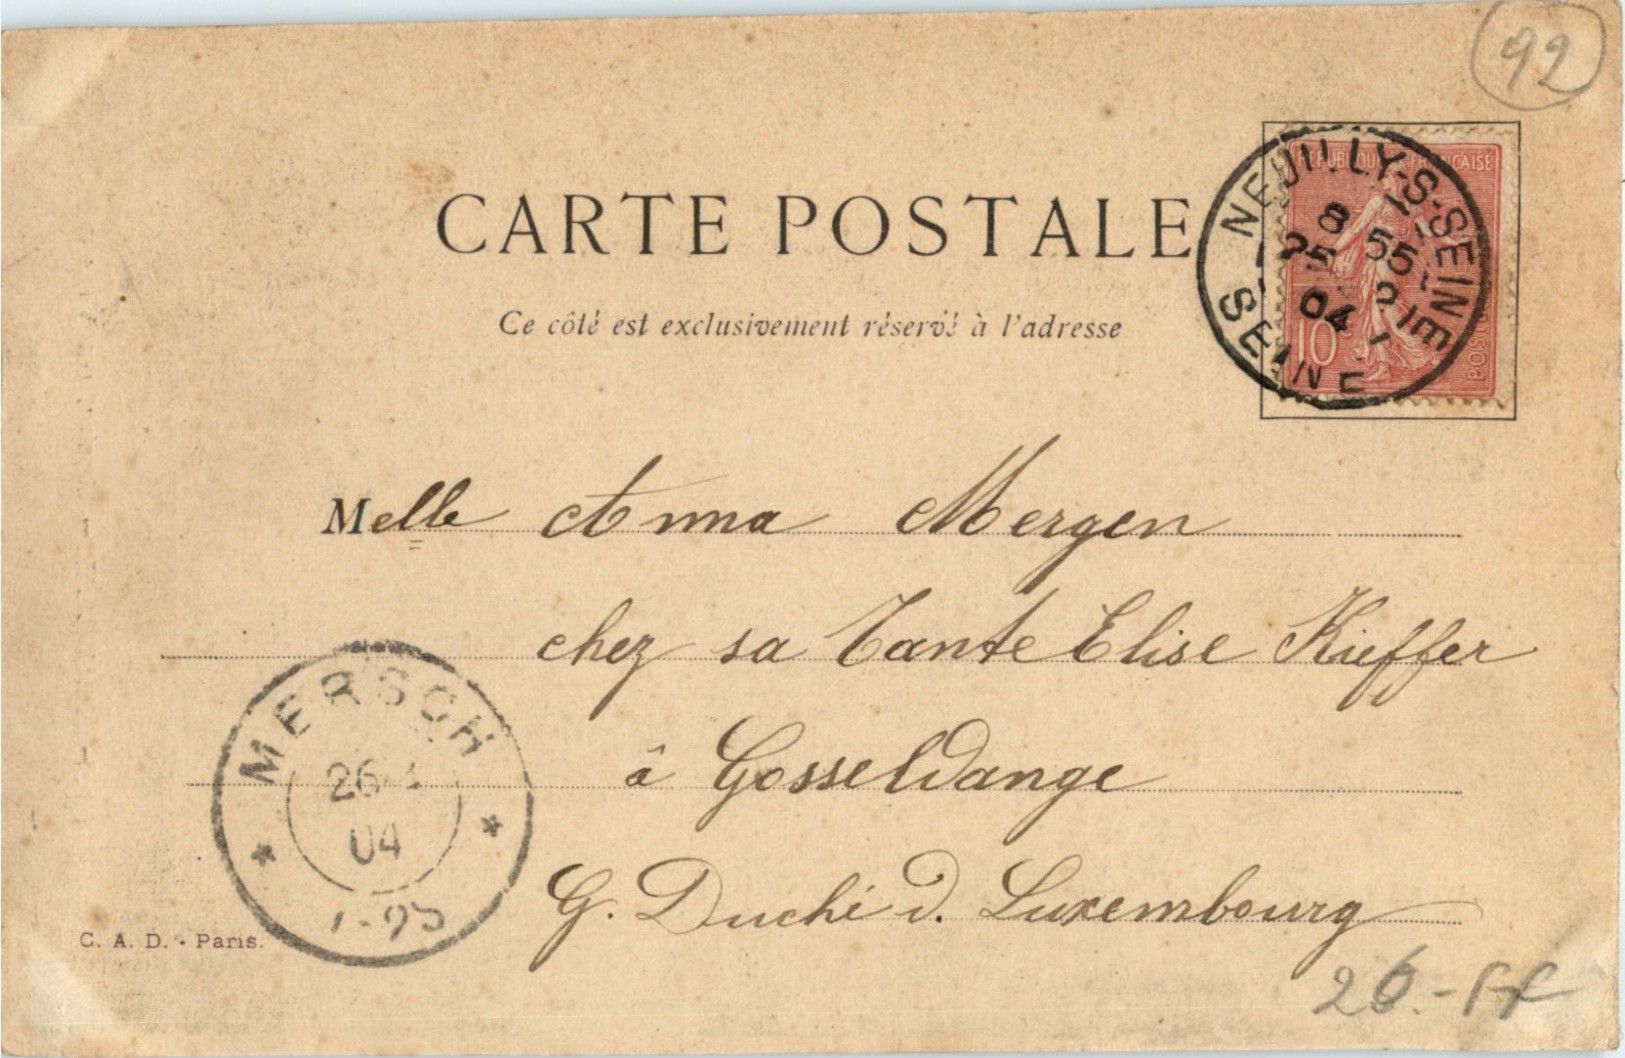 92
CARTE POSTALE
Ce côté est exclusivement réservé à l'adresse
RÉPUBLIQUE FRANÇAISE
10
NEUILLY-S-SEINE
8 55
25
04
SEINE
Melle Anna Mergen
chez sa Tante Elise Kieffer
à Gosseldange
G. Duché d. Luxembourg
MERSCH
26
04
C. A. D. - Paris.